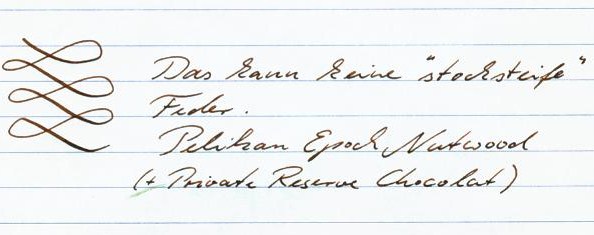 Das kann keine "stocksteife"
Feder.
Pelikan Epoch Nutwood
(+ Private Reserve Chocolat)